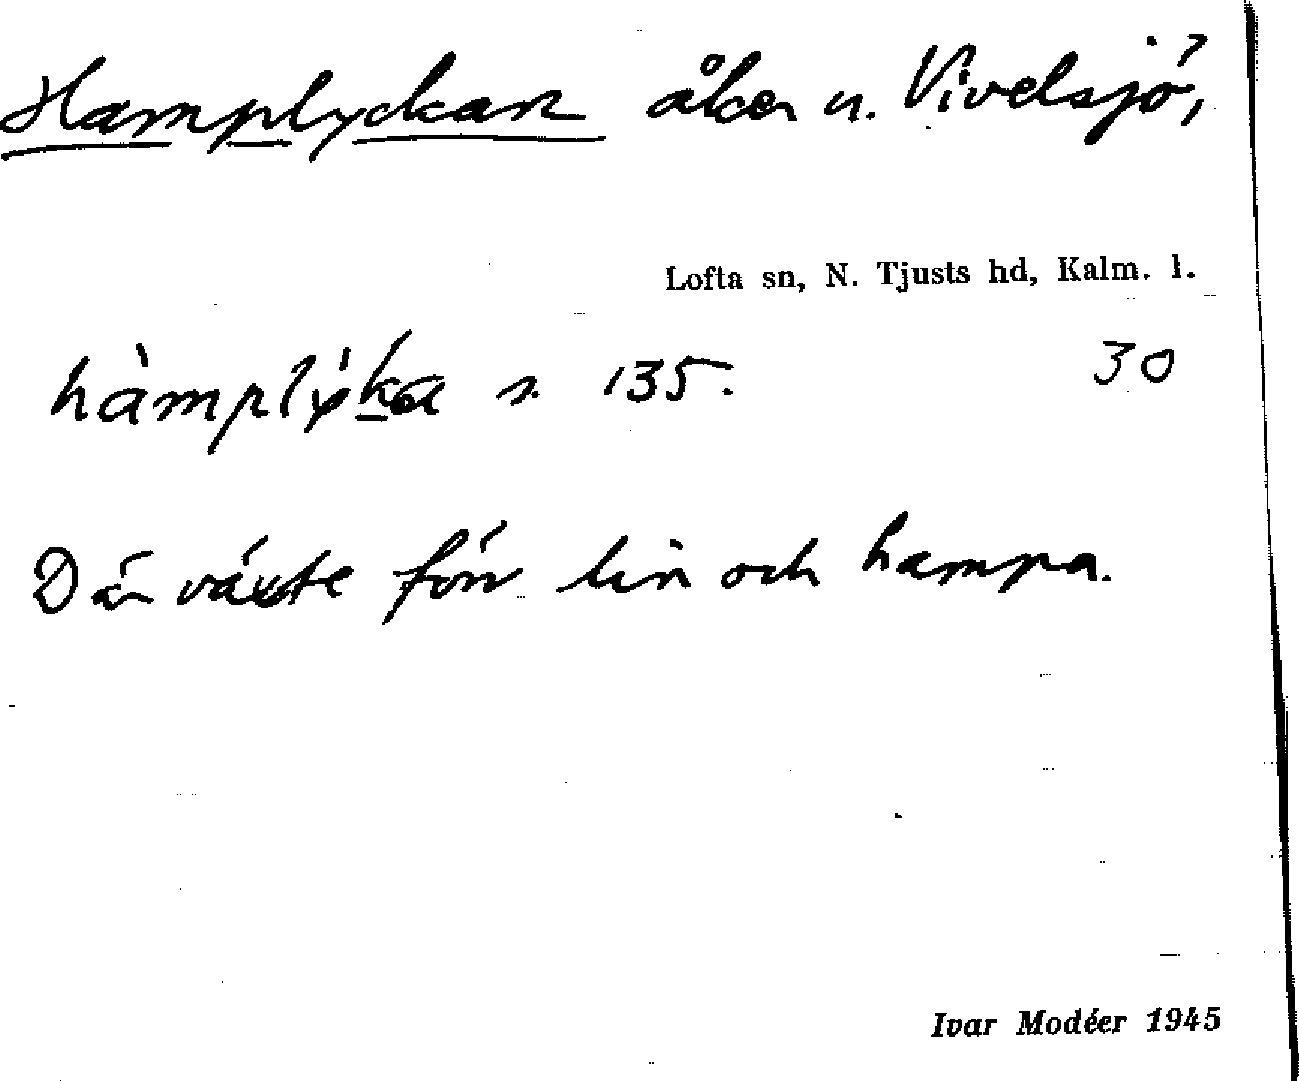 Hamplyckan åker u. Vivelsjö,
Lofta sn, N. Tjusts hd, Kalm. l.
hàmplýka s. 135. 30
Där växte förr lin och hampa.
Ivar Modéer 1945